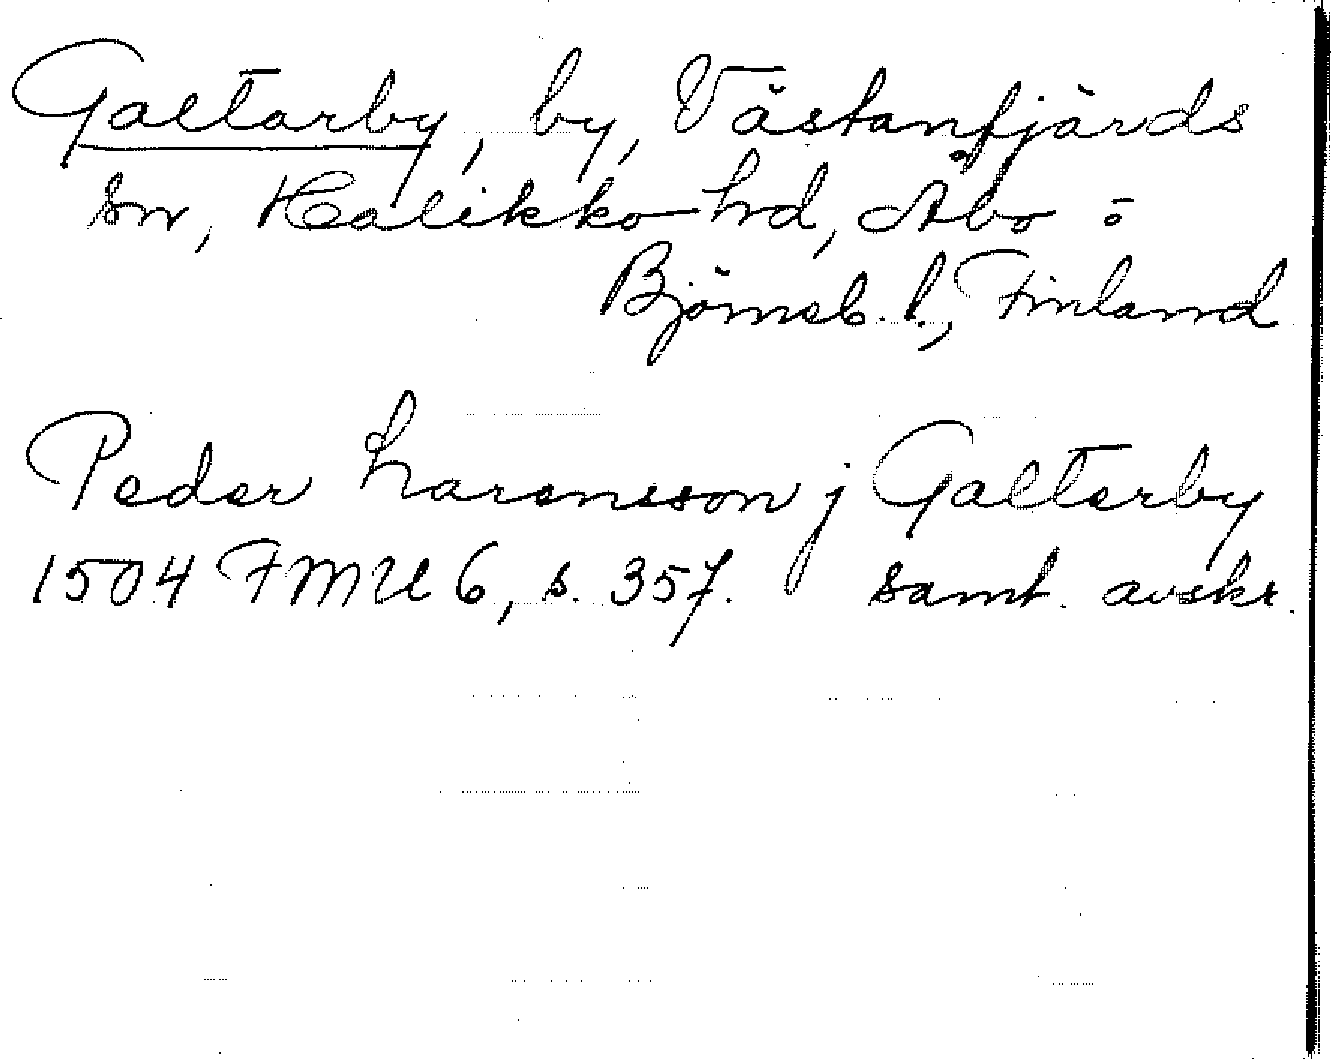 Galtarby, by, Västanfjärds
sn, Halikko hrd, Åbo o
Björneb. l., Finland
Peder Larensson j Galterby
1504 FMU 6, s. 357. samt. avskr.